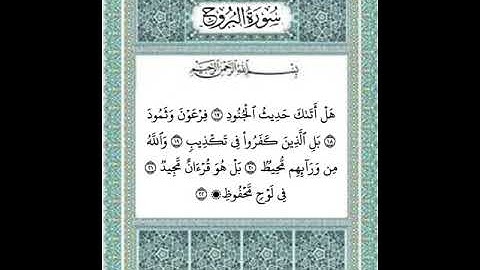 سُورَةُ البُرُوجِ
بِسْمِ اللَّهِ الرَّحْمَنِ الرَّحِيمِ
هَلْ أَتَىٰكَ حَدِيثُ ٱلْجُنُودِ ١٧ فِرْعَوْنَ وَثَمُودَ
١٨ بَلِ ٱلَّذِينَ كَفَرُوا۟ فِى تَكْذِيبٍ ١٩ وَٱللَّهُ
مِن وَرَآئِهِم مُّحِيطٌۢ ٢٠ بَلْ هُوَ قُرْءَانٌ مَّجِيدٌ ٢١
فِى لَوْحٍ مَّحْفُوظٍۭ ٢٢